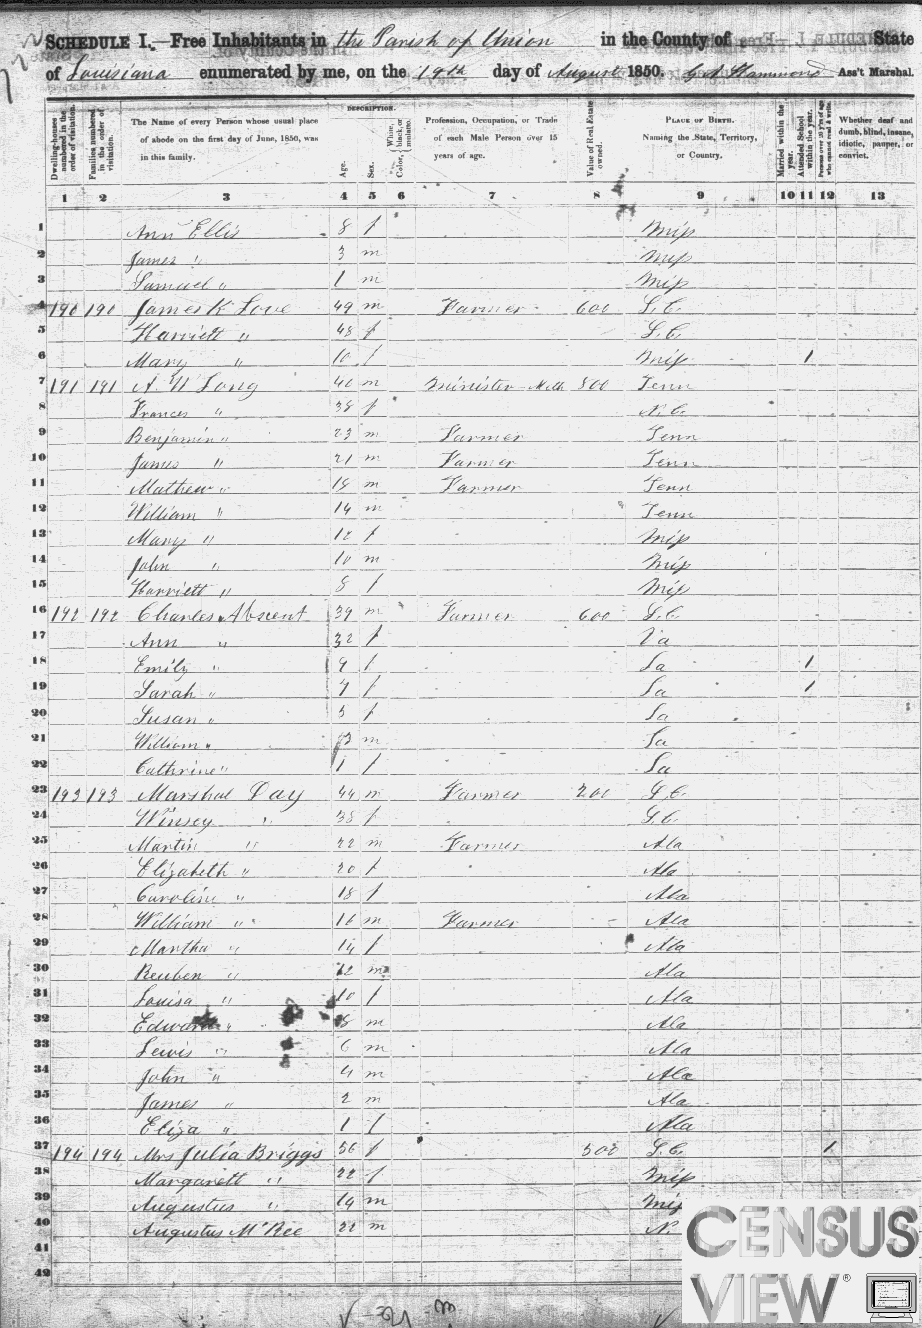 SCHEDULE I.—Free Inhabitants in the Parish of Union in the County of State
of Louisiana enumerated by me, on the 19th day of August 1850. G A Hammond Ass't Marshal.
Dwelling-houses numbered in the order of visitation.
Families numbered in the order of visitation.
The Name of every Person whose usual place of abode on the first day of June, 1850, was in this family.
DESCRIPTION.
Age.
Sex.
Color, White, black, or mulatto.
Profession, Occupation, or Trade of each Male Person over 15 years of age.
Value of Real Estate owned.
PLACE OF BIRTH. Naming the State, Territory, or Country.
Married within the year.
Attended School within the year.
Persons over 20 y'rs of age who cannot read & write.
Whether deaf and dumb, blind, insane, idiotic, pauper, or convict.
1 2 3 4 5 6 7 8 9 10 11 12 13
1 Ann Ellis 8 f Miss
2 James " 3 m Miss
3 Samuel " 1 m Miss
4 190 190 James K Love 49 m Farmer 600 S.C.
5 Harriett " 48 f S.C.
6 Mary " 10 f Miss 1
7 191 191 A. W Long 40 m Minister Meth 800 Tenn
8 Frances " 38 f N.C.
9 Benjamin " 23 m Farmer Tenn
10 James " 21 m Farmer Tenn
11 Mathew " 18 m Farmer Tenn
12 William " 14 m Tenn
13 Mary " 12 f Miss
14 John " 10 m Miss
15 Harriett " 8 f Miss
16 192 192 Charles Abscent 39 m Farmer 600 S.C.
17 Ann " 32 f Va
18 Emily " 9 f La 1
19 Sarah " 7 f La 1
20 Susan " 5 f La
21 William " 3 m La
22 Cathrine " 1 f La
23 193 193 Marshal Day 44 m Farmer 200 S.C.
24 Winsey " 38 f S.C.
25 Martin " 22 m Farmer Ala
26 Elizabeth " 20 f Ala
27 Caroline " 18 f Ala
28 William " 16 m Farmer Ala
29 Martha " 14 f Ala
30 Reuben " 12 m Ala
31 Louisa " 10 f Ala
32 Edward " 8 m Ala
33 Lewis " 6 m Ala
34 John " 4 m Ala
35 James " 2 m Ala
36 Eliza " 1 f Ala
37 194 194 Mrs Julia Briggs 56 f 500 S.C. 1
38 Margarett " 22 f Miss
39 Augustus " 19 m Miss
40 Augustus McRee 22 m N.
41
42
CENSUS
VIEW®